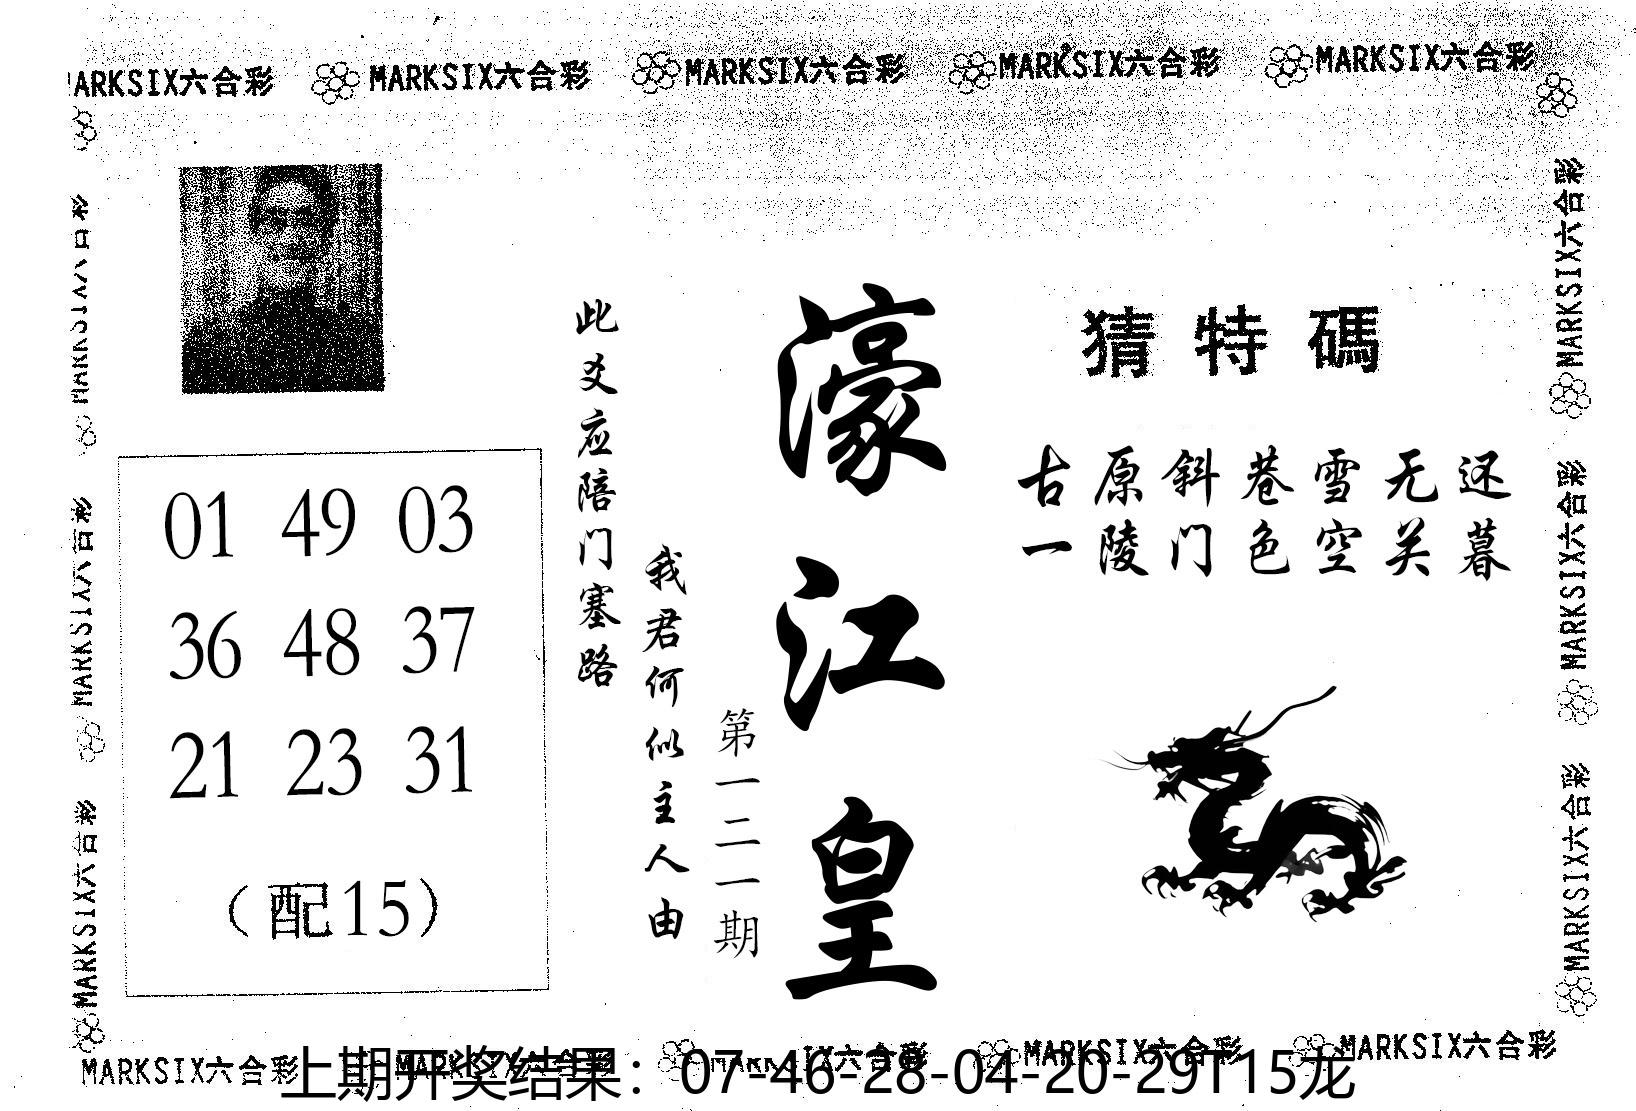 MARKSIX六合彩 MARKSIX六合彩 MARKSIX六合彩 MARKSIX六合彩 MARKSIX六合彩
MARKSIX六合彩
MARKSIX六合彩
MARKSIX六合彩
01 49 03
36 48 37
21 23 31
（配15）
此爻应陪门塞路
我君何似主人由
第一二一期
濠江皇
猜特碼
古原斜巷雪无还
一陵门色空关暮
MARKSIX六合彩
MARKSIX六合彩
MARKSIX六合彩
MARKSIX六合彩 MARKSIX六合彩 MARKSIX六合彩 MARKSIX六合彩 MARKSIX六合彩
上期开奖结果：07-46-28-04-20-29T15龙